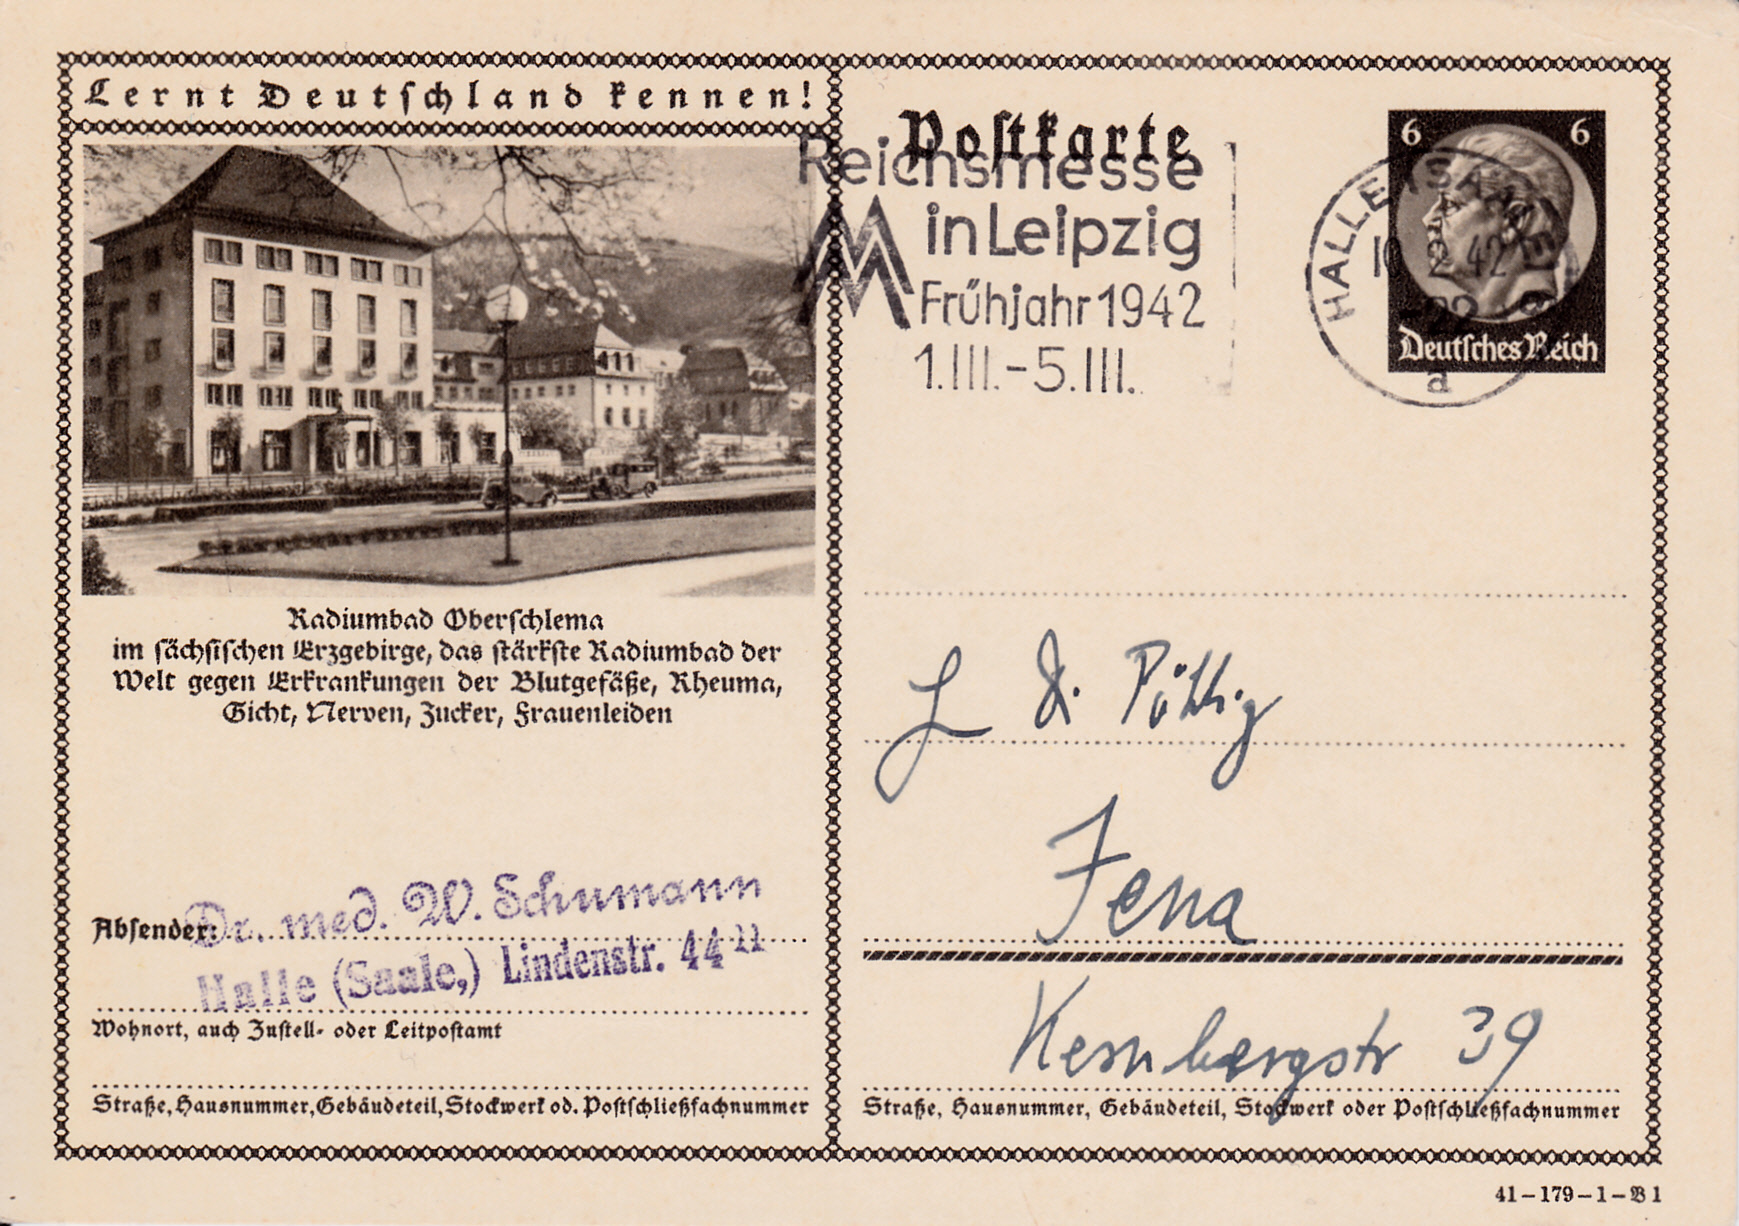 Lernt Deutschland kennen!
Radiumbad Oberschlema
im sächsischen Erzgebirge, das stärkste Radiumbad der
Welt gegen Erkrankungen der Blutgefäße, Rheuma,
Gicht, Nerven, Zucker, Frauenleiden
Absender: Dr. med. W. Schumann
Halle (Saale,) Lindenstr. 44 II
Wohnort, auch Zustell- oder Leitpostamt
Straße, Hausnummer, Gebäudeteil, Stockwerk od. Postschließfachnummer
Postkarte
Reichsmesse
in Leipzig
Frühjahr 1942
1.III.-5.III.
HALLE (SAALE)
2.42
a
6 6
Deutsches Reich
Jena
Kernbergstr 39
Straße, Hausnummer, Gebäudeteil, Stockwerk oder Postschließfachnummer
41-179-1-B 1